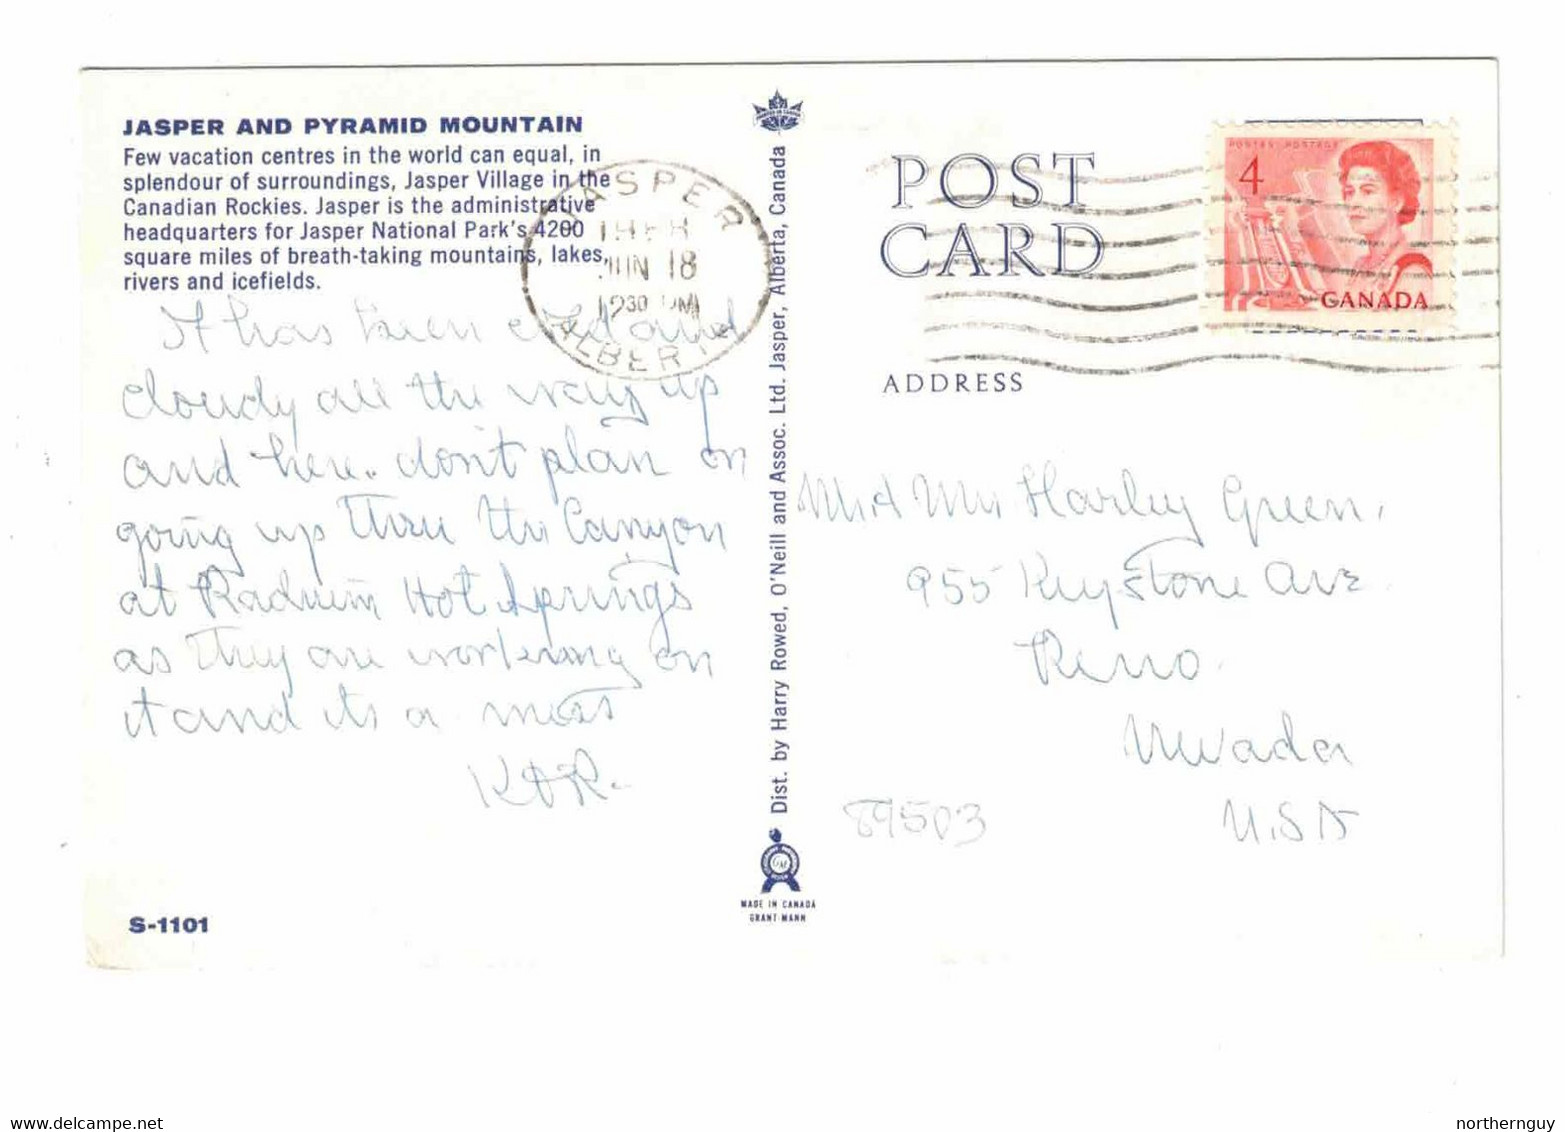 JASPER AND PYRAMID MOUNTAIN
Few vacation centres in the world can equal, in
splendour of surroundings, Jasper Village in the
Canadian Rockies. Jasper is the administrative
headquarters for Jasper National Park's 4200
square miles of breath-taking mountains, lakes,
rivers and icefields.
It has been cold and
cloudy all the way up
and here. don't plan on
going up thru the Canyon
at Radium Hot Springs
as they are working on
it and its a mess
S-1101
JASPER
JUN 18
1230 PM
ALBERTA
Dist. by Harry Rowed, O'Neill and Assoc. Ltd. Jasper, Alberta, Canada
MADE IN CANADA
GRANT-MANN
POST
CARD
ADDRESS
POSTES POSTAGE
4
CANADA
Mrs Harley Green,
955 Keystone Ave
Reno
Nevada
89503 U.S.A
delcampe.net
northernguy